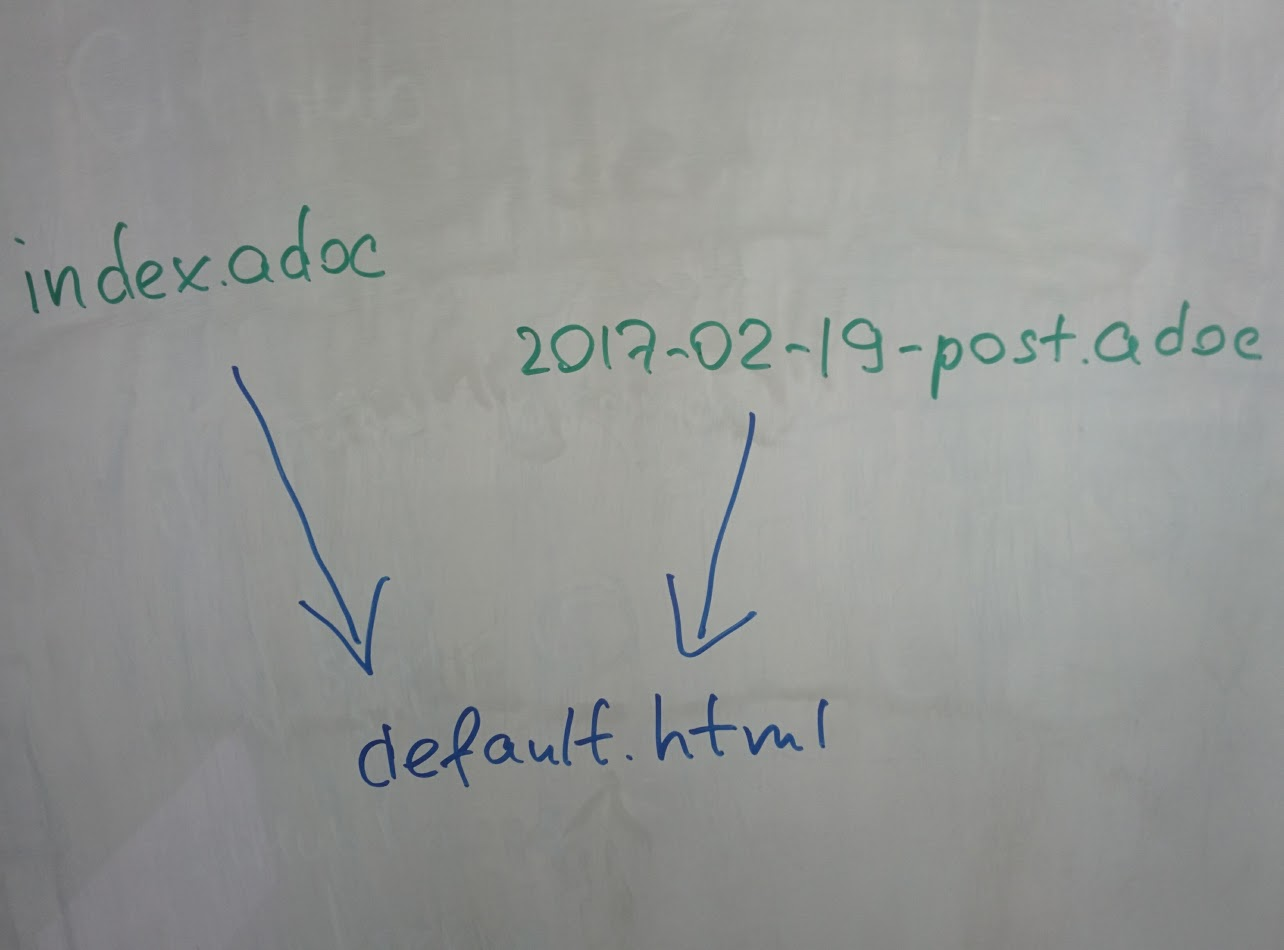 index.adoc
2017-02-19-post.adoc
default.html